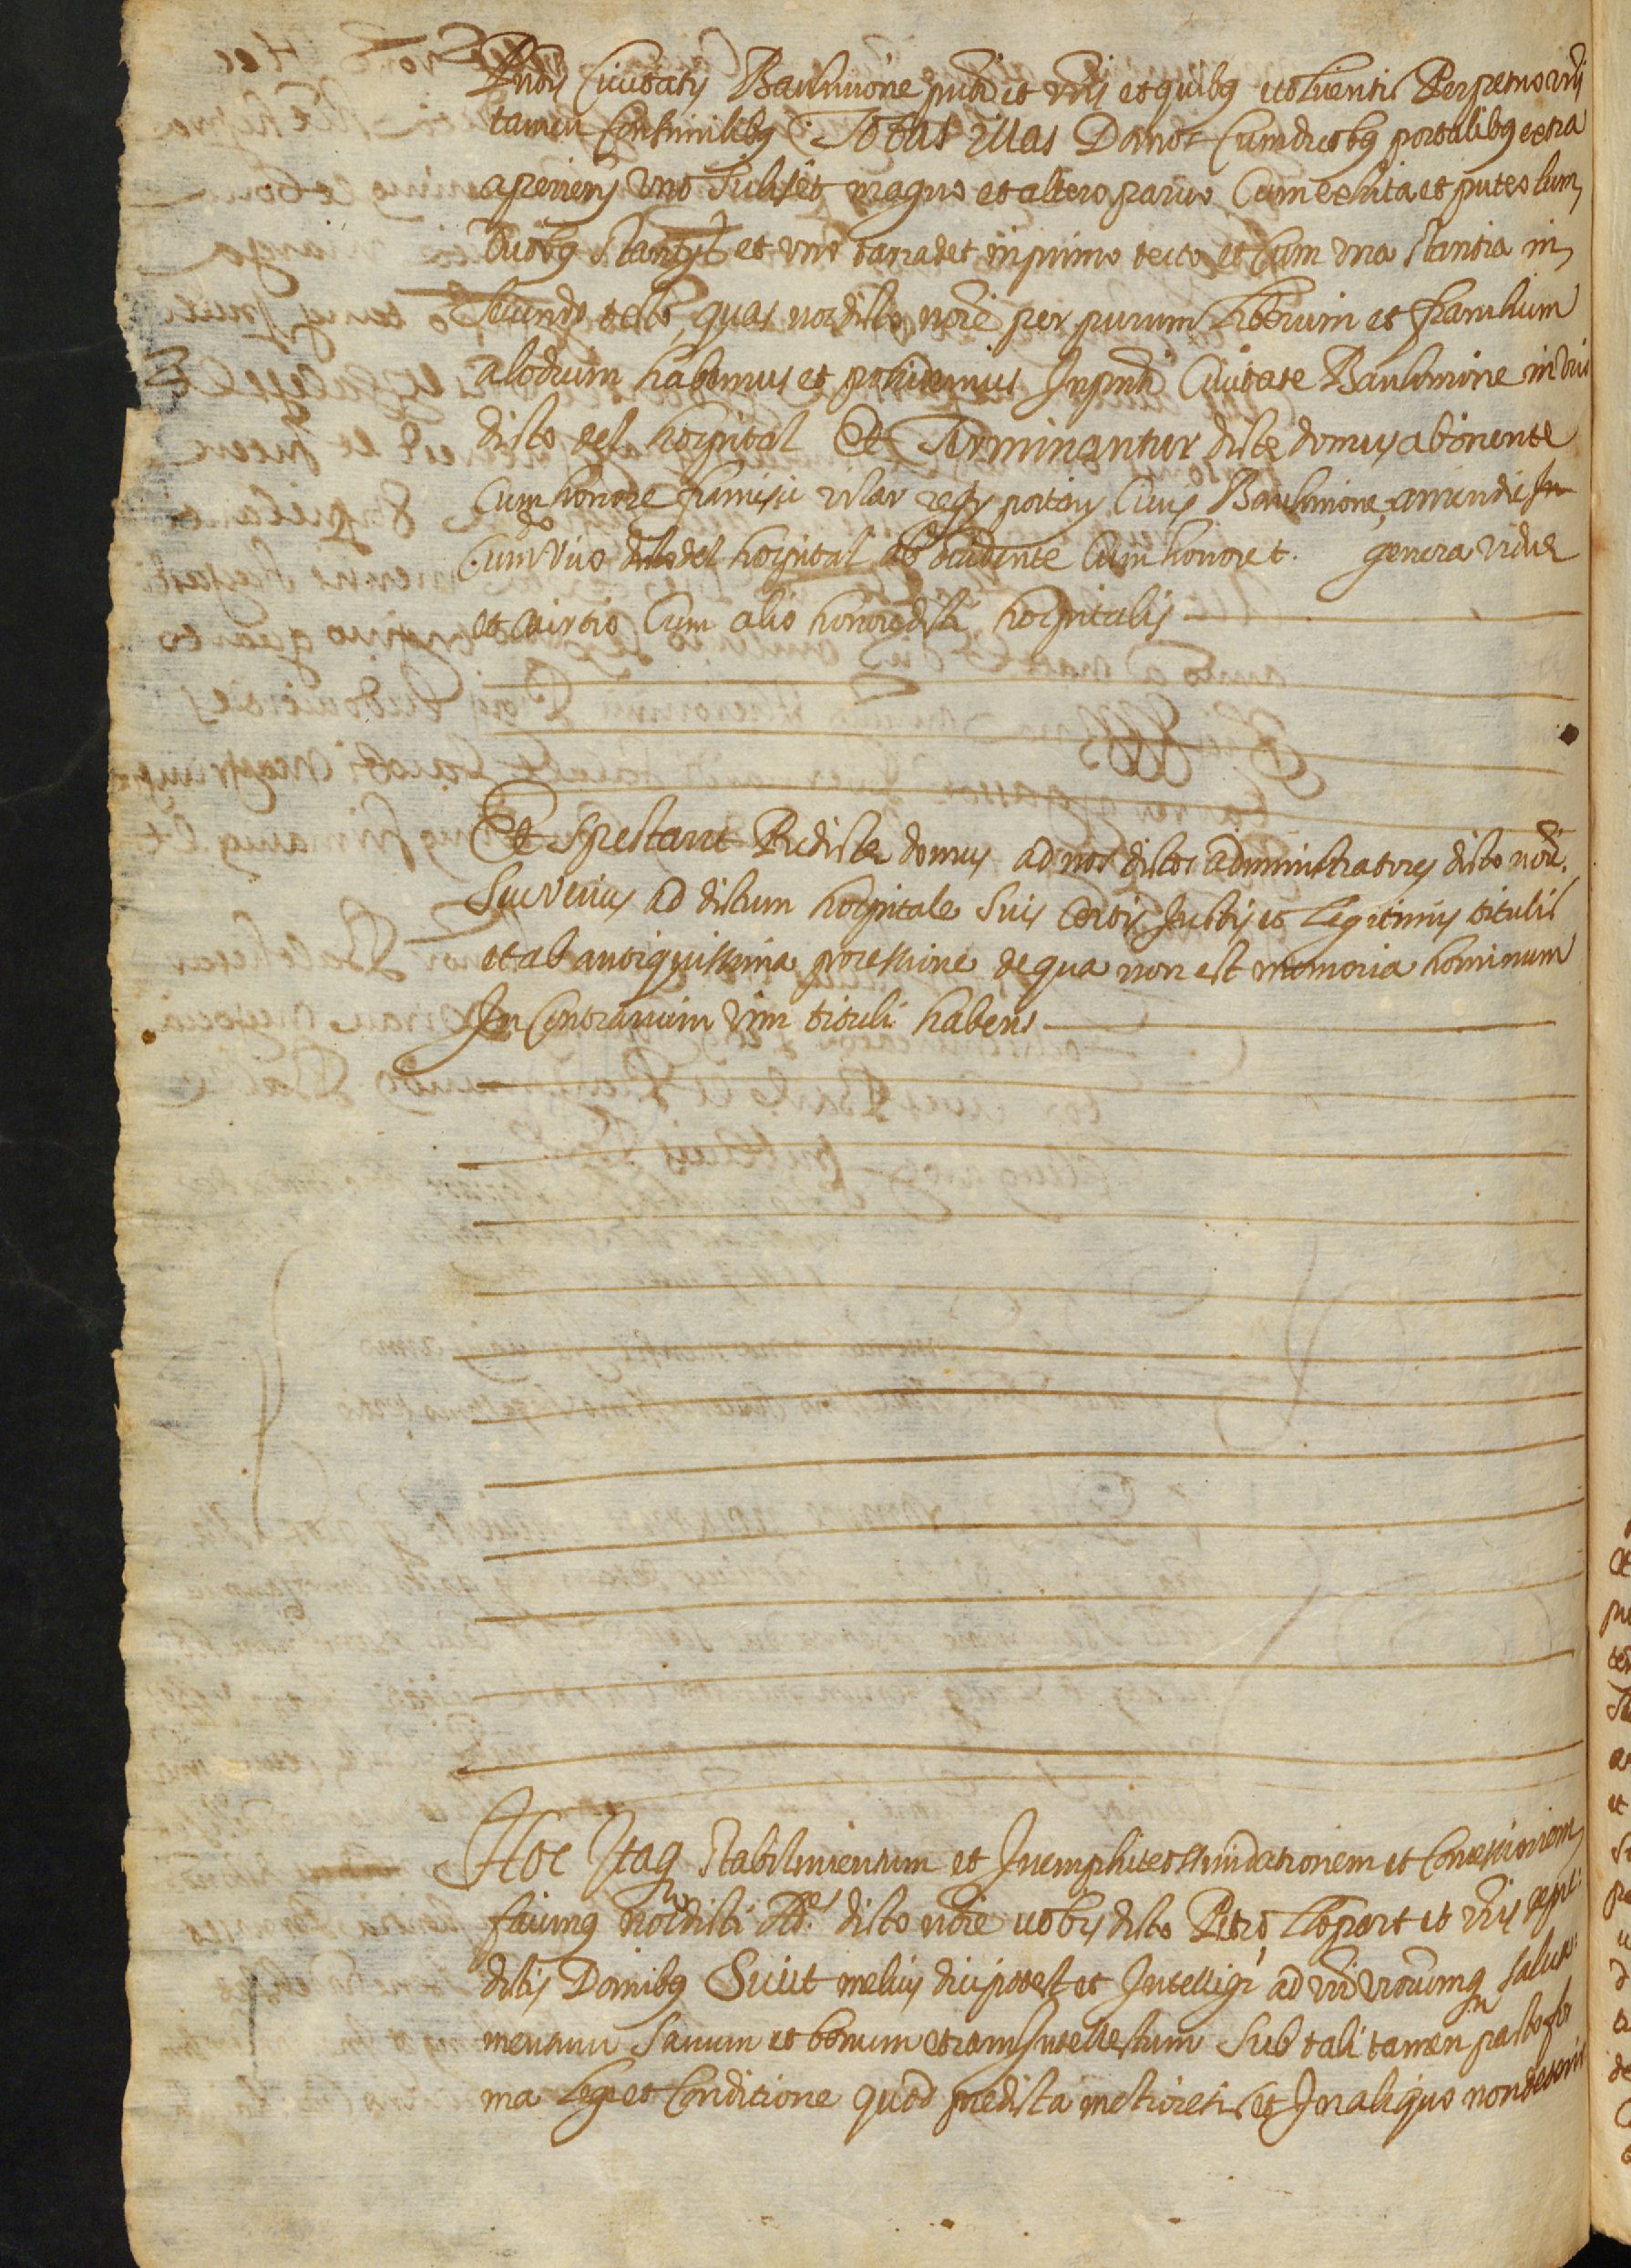 Civitatis Barchinone pnti et vris et quibus volueritis Perpetuo vris
tamen Consimilibus Totas illas Domos Cum duobus portalibus extra
aperiens uno scilicet magno et altero parvo Cum exhita et puteo cum
duobus stantys et uno terradet in primo tecto et Cum una stantia in
secundo tecto quas nos dicto noie per purum liberum et franchum
alodium habemus et possidemus In pnti Civitate Barchinone in vico
dicto del hospital Et Terminantur dicte domus ab oriente
Cum honore francisci vilar regys portary Civis Barchinone, a meridie
Cum vico dicto del hospital ab occidente Cum honore t. genera vidue
et a circio Cum alio honore dicti hospitalis
Et spectant Pdicte domus ad nos dictos administratores dicto noie.
Seu verius ad dictum hospitale Suis Certis Justis et Legitimis titulis
et ab antiquissima possessione de qua non est memoria hominum
In Contrarium vim tituli habens
Hoc Itaq stabilimentum et In emphiteosim dationem et Concessionem
facimus nos dicti Ad.es dicto noie vobis dicto Petro Llopart et vris de pre-
dictis Domibus Sicut melius dici potest et Intelligi ad vrm vrorumq salva-
mentum Sanum et bonum etiam Intellectum Sub tali tamen In pacto for
ma Lege et Conditione quod predicta melioretis et In aliquo non deteri